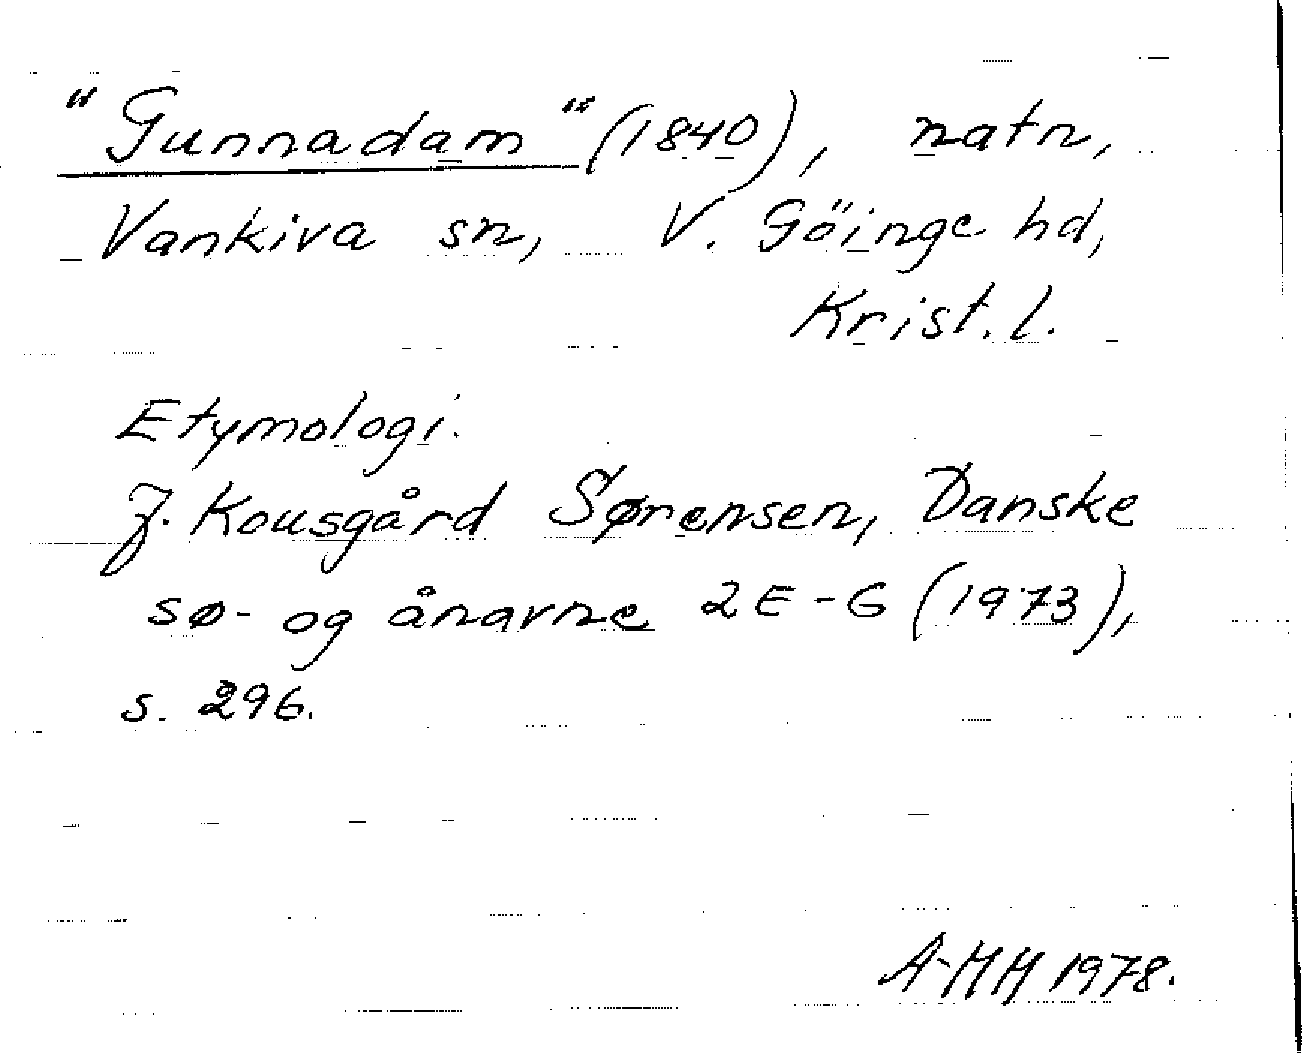 "Gunnadam" (1840), natn,
Vankiva sn, V. Göinge hd,
Krist. l.
Etymologi.
J. Kousgård Sørensen, Danske
sø- og ånavne 2 E-G (1973),
s. 296.
A-MH 1978.